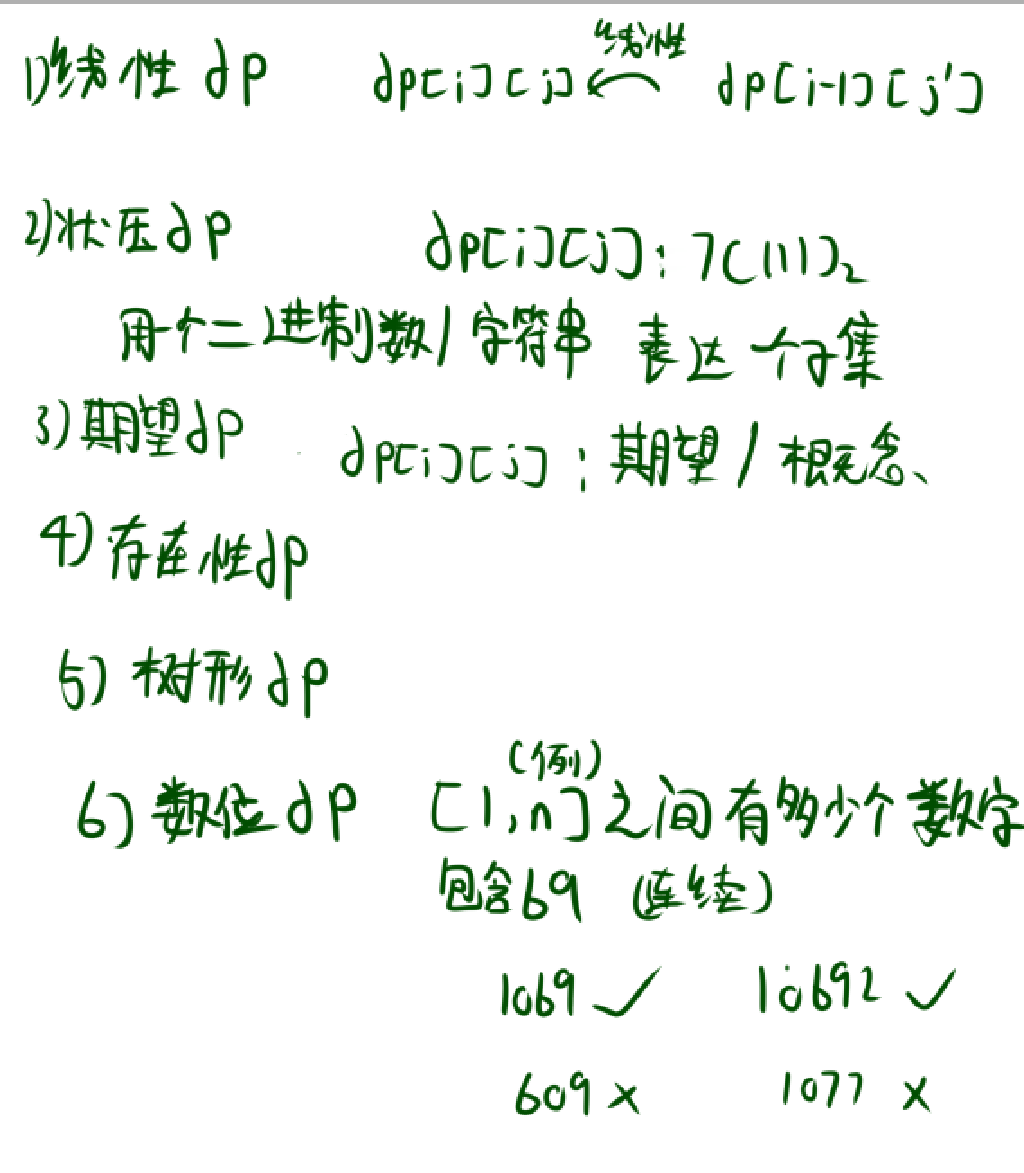 线性
1)线性dp dp[i][j] ← dp[i-1][j']
2)状压dp dp[i][j]: 7(111)₂
用个二进制数/字符串 表达一个子集
3)期望dp dp[i][j]:期望/概念、
4)存在性dp
5)树形dp
(例)
6)数位dp [1,n]之间有多少个数字
包含69 (连续)
1069 ✓ 10692 ✓
609 × 1077 ×